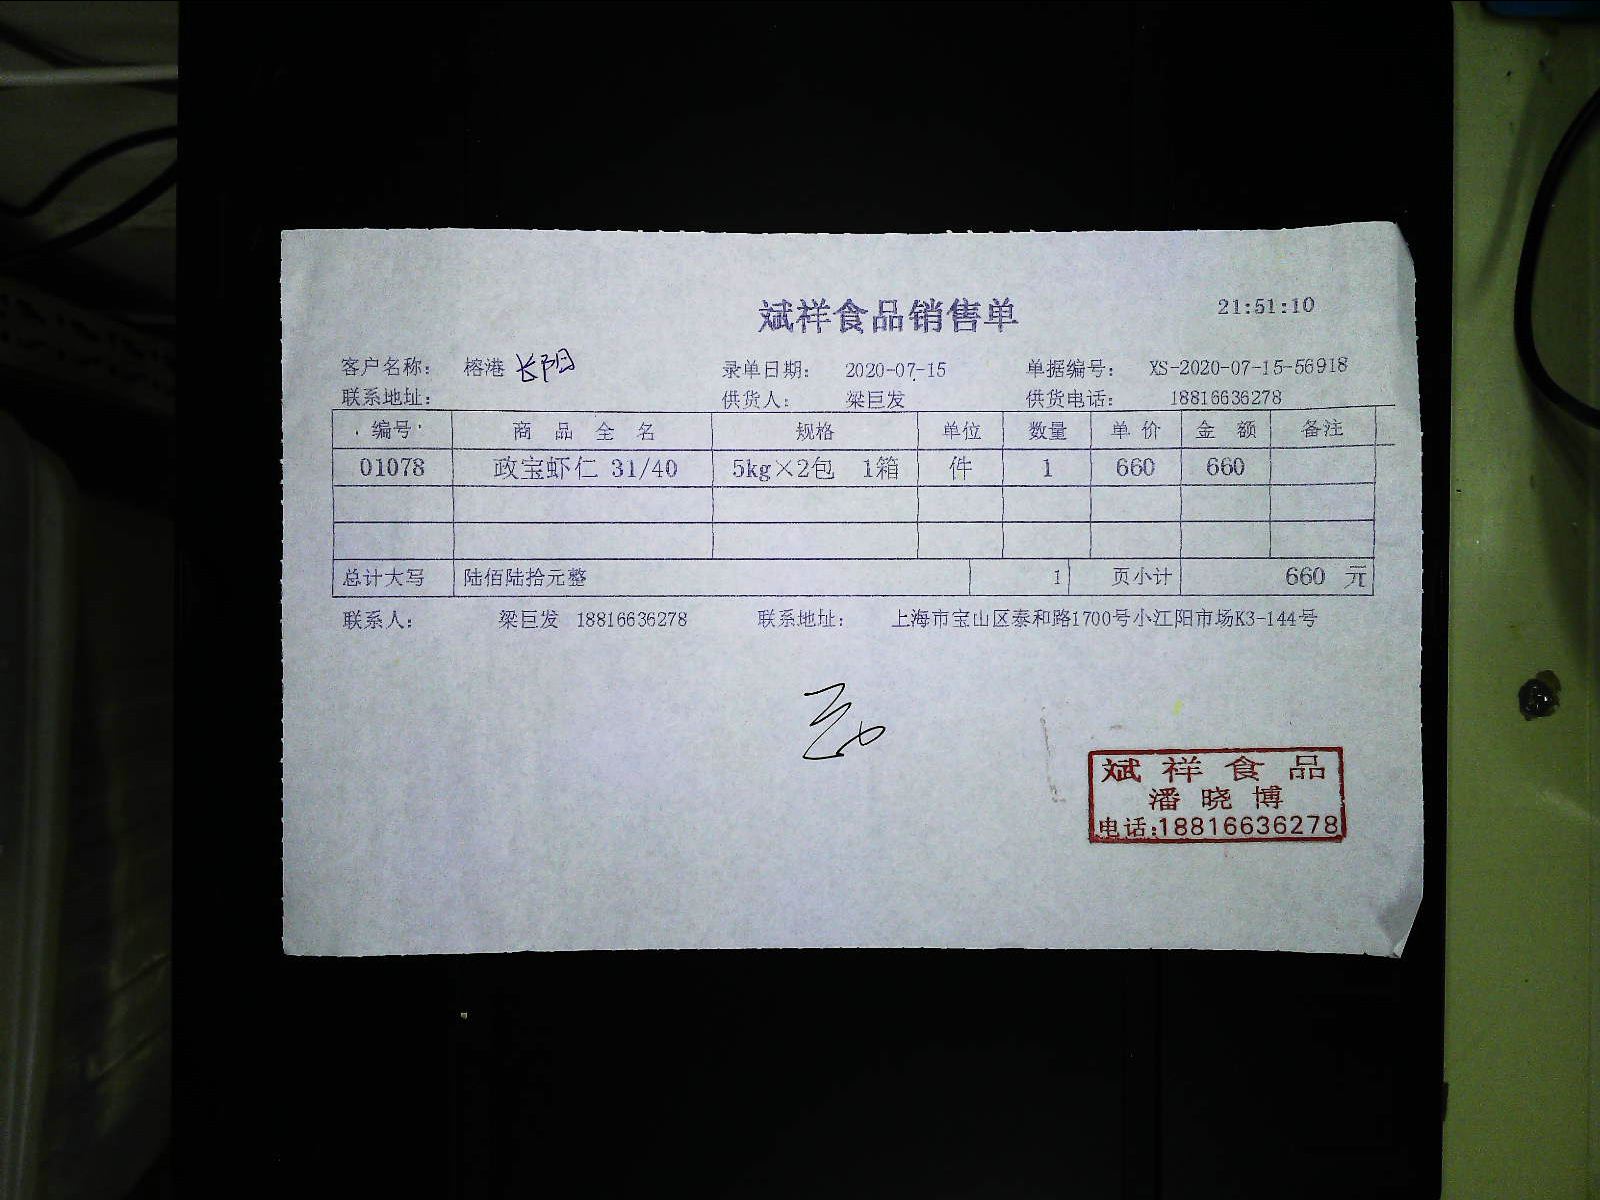 斌祥食品销售单 21:51:10
客户名称： 榕港 长阳 录单日期： 2020-07-15 单据编号： XS-2020-07-15-56918
联系地址： 供货人： 梁巨发 供货电话： 18816636278
编号 商品全名 规格 单位 数量 单价 金额 备注
01078 政宝虾仁 31/40 5kg×2包 1箱 件 1 660 660
总计大写 陆佰陆拾元整 1 页小计 660 元
联系人： 梁巨发 18816636278 联系地址： 上海市宝山区泰和路1700号小江阳市场K3-144号
斌祥食品
潘晓博
电话:18816636278